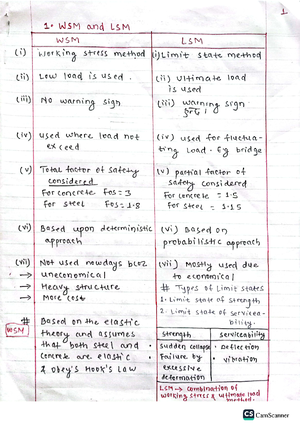 1
1. WSM and LSM
WSM
LSM
(i) Working stress method
(i) Limit state method
(ii) Low load is used.
(ii) Ultimate load
is used
(iii) No warning sign
(iii) warning sign
(iv) used where load not
exceed
(iv) used for fluctua-
ting load. Eg bridge
(v) Total factor of safety
considered
For concrete Fos = 3
For steel Fos = 1.8
(v) partial factor of
safety considered
For concrete = 1.5
For steel = 1.15
(vi) Based upon deterministic
approach
(vi) Based on
probabilistic approach
(vii) Not used nowdays bcoz
→ uneconomical
→ Heavy structure
→ More cost
(vii) Mostly used due
to economical
# Types of Limit states
1. Limit state of strength
2. Limit state of servicea-
bility.
# Based on the elastic
WSM
theory and assumes
that both steel and
concrete are elastic
& obey's Hook's Law
strength
serviceability
• sudden collapse
• Failure by
excessive
deformation
• Deflection
• vibration
LSM → combination of
working stress & ultimate load
method.
CS CamScanner